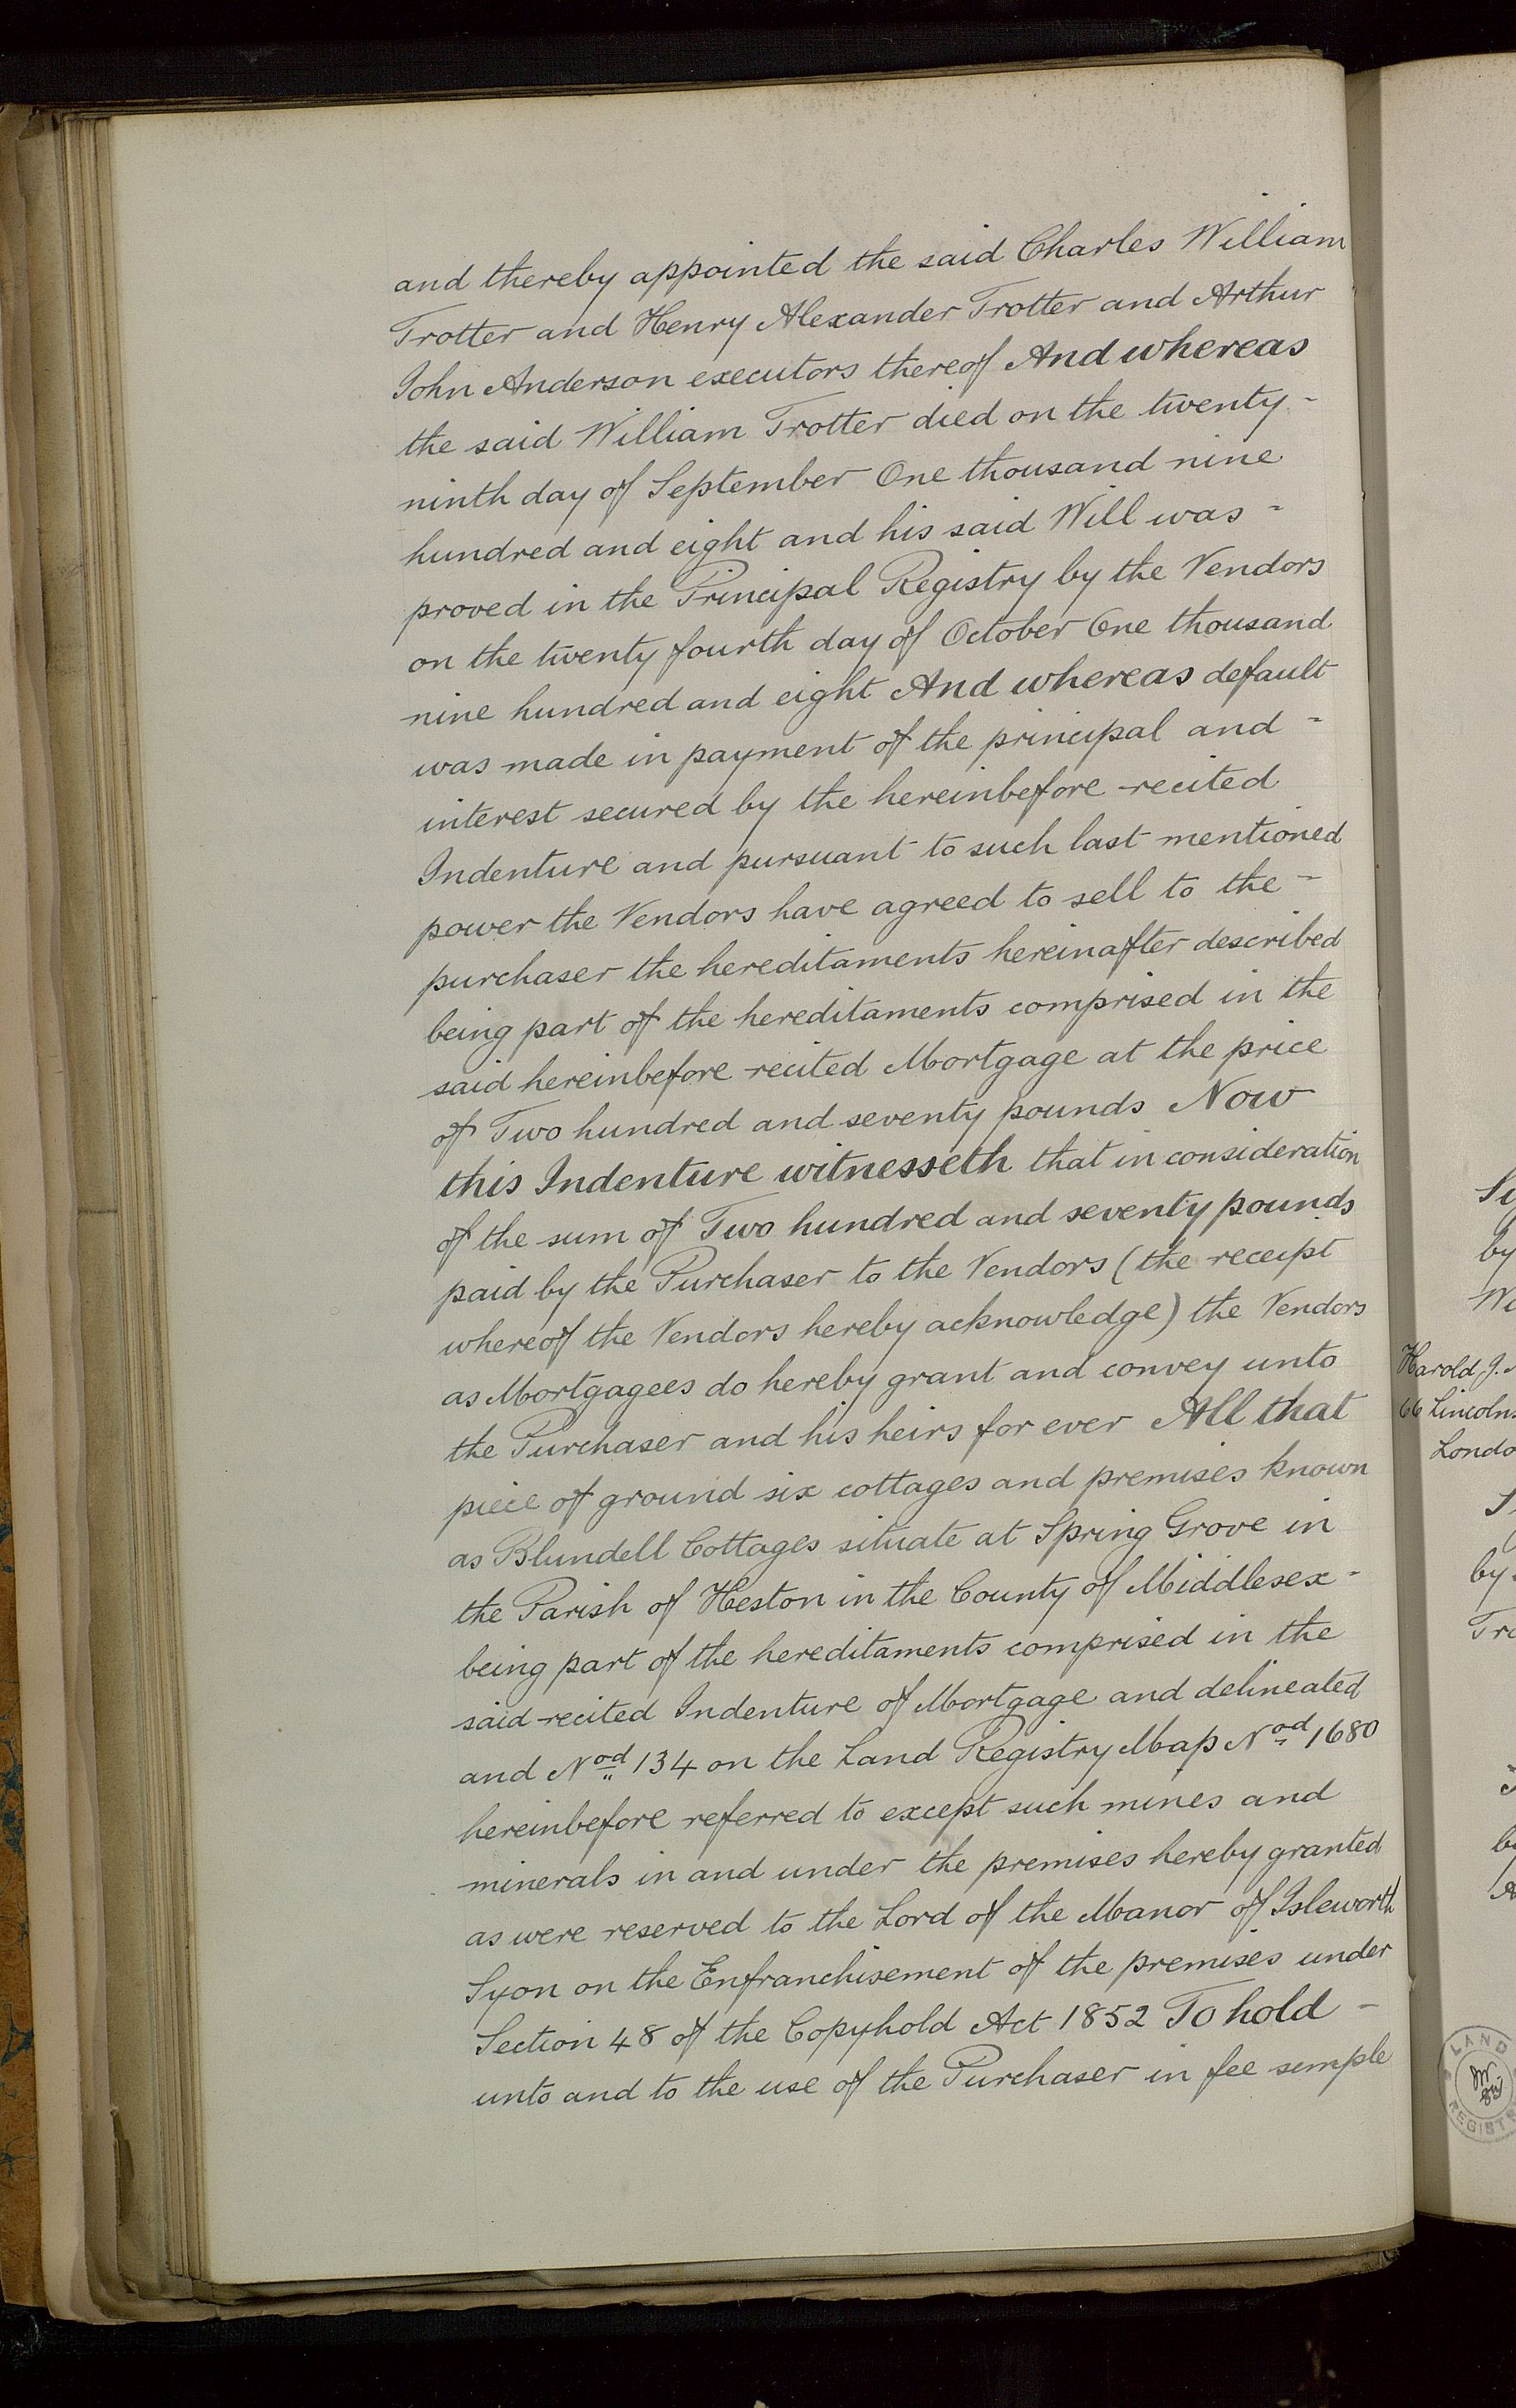 and thereby appointed the said Charles William
Trotter and Henry Alexander Trotter and Arthur
John Anderson executors thereof And whereas
the said William Trotter died on the twenty-
ninth day of September One thousand nine
hundred and eight and his said Will was =
proved in the Principal Registry by the Vendors
on the twenty fourth day of October One thousand
nine hundred and eight And whereas default
was made in payment of the principal and =
interest secured by the hereinbefore recited
Indenture and pursuant to such last mentioned
power the Vendors have agreed to sell to the =
purchaser the hereditaments hereinafter described
being part of the hereditaments comprised in the
said hereinbefore recited Mortgage at the price
of Two hundred and seventy pounds Now
this Indenture witnesseth that in consideration
of the sum of Two hundred and seventy pounds
paid by the Purchaser to the Vendors (the receipt
whereof the Vendors hereby acknowledge) the Vendors
as Mortgagees do hereby grant and convey unto
the Purchaser and his heirs for ever All that
piece of ground six cottages and premises known
as Blundell Cottages situate at Spring Grove in
the Parish of Heston in the County of Middlesex -
being part of the hereditaments comprised in the
said recited Indenture of Mortgage and delineated
and Nod 134 on the Land Registry Map Nod 1680
hereinbefore referred to except such mines and
minerals in and under the premises hereby granted
as were reserved to the Lord of the Manor of Isleworth
Syon on the Enfranchisement of the premises under
Section 48 of the Copyhold Act 1852 To hold -
unto and to the use of the Purchaser in fee simple
by
Harold J.
66 Lincolns
Londo
by
LAND
REGIST